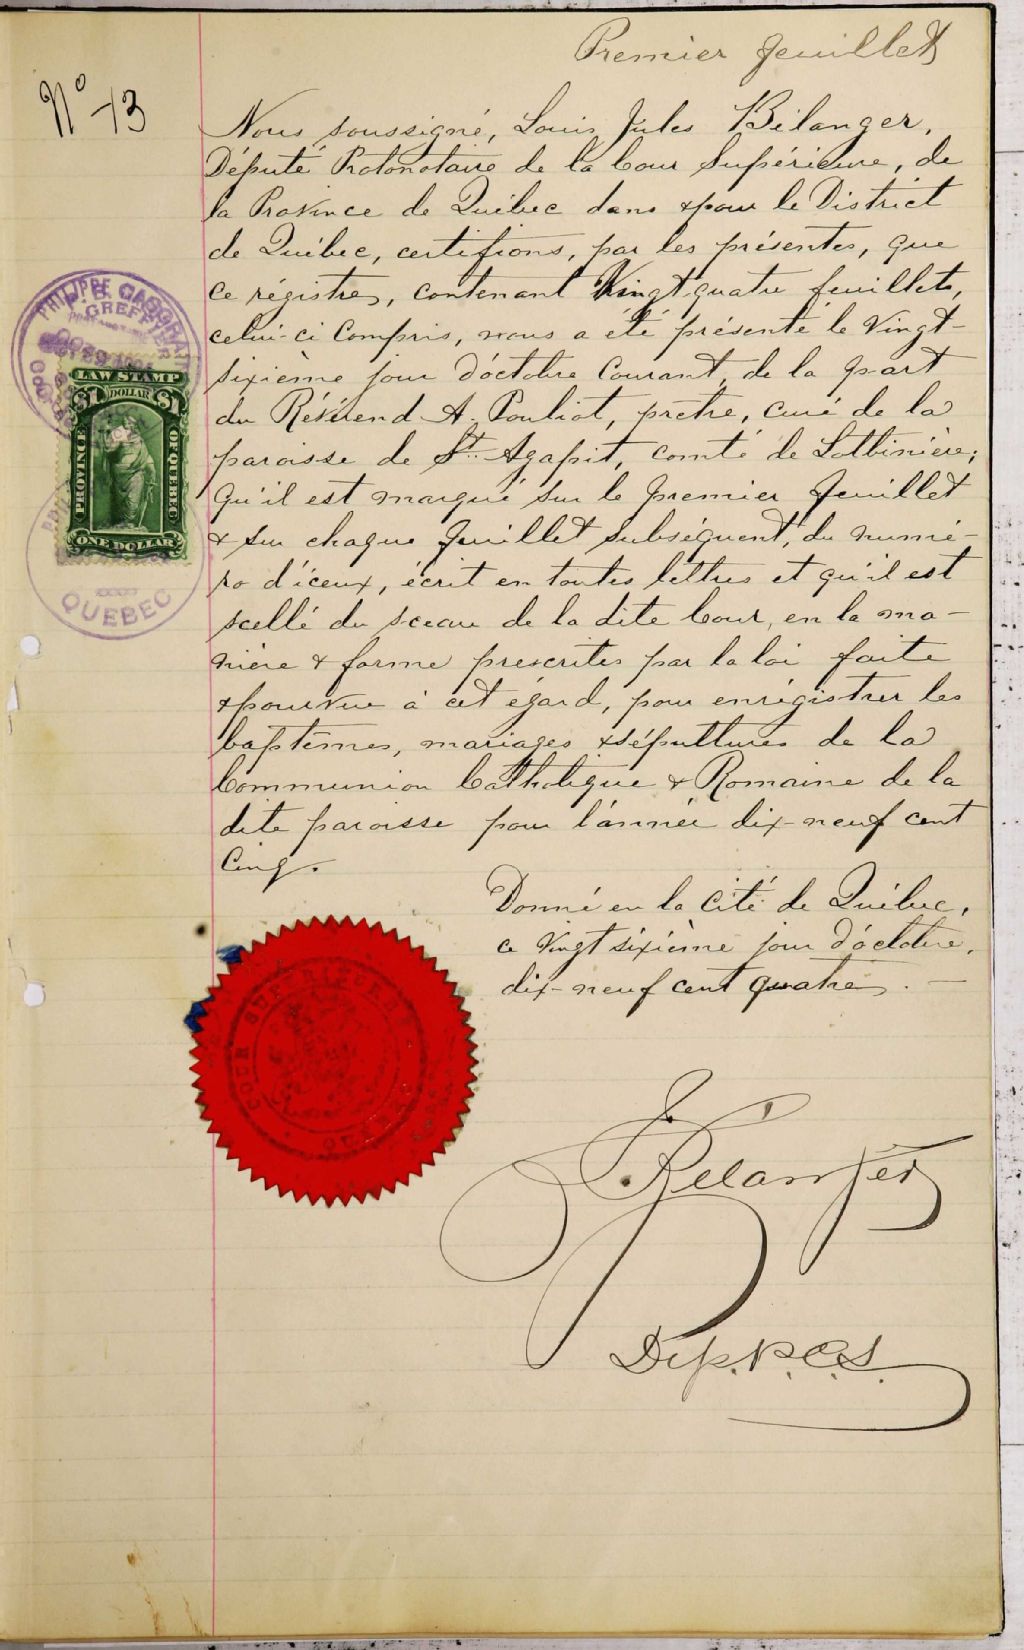 Premier feuillet
N° 13
Nous soussigné, Louis Jules Bélanger,
Député Protonotaire de la Cour Supérieure, de
la Province de Québec dans & pour le District
de Québec, certifions, par les présentes, que
ce régistre, contenant Vingt quatre feuillets,
celui-ci Compris, nous a été présenté le Vingt-
sixième jour d'octobre Courant, de la part
du Révérend A. Pouliot, prêtre, curé de la
paroisse de St. Agapit, comté de Lotbinière;
Qu'il est marqué sur le premier feuillet
& sur chaque feuillet subséquent, du numé-
ro d'iceux, écrit en toutes lettres et qu'il est
scellé du sceau de la dite Cour, en la ma-
nière & forme prescrites par la loi faite
& pourvue à cet égard, pour enrégistrer les
baptêmes, mariages & sépultures de la
Communion Catholique & Romaine de la
dite paroisse pour l'année dix-neuf cent
Cinq.
Donné en la Cité de Québec,
ce Vingt sixième jour d'octobre,
dix-neuf cent quatre. —
Belanger
Dep. P. C. S.
PHILIPPE
GREFFIER
LAW STAMP
$1 DOLLAR $1
PROVINCE OF QUEBEC
ONE DOLLAR
QUEBEC
COUR SUPERIEURE
QUEBEC